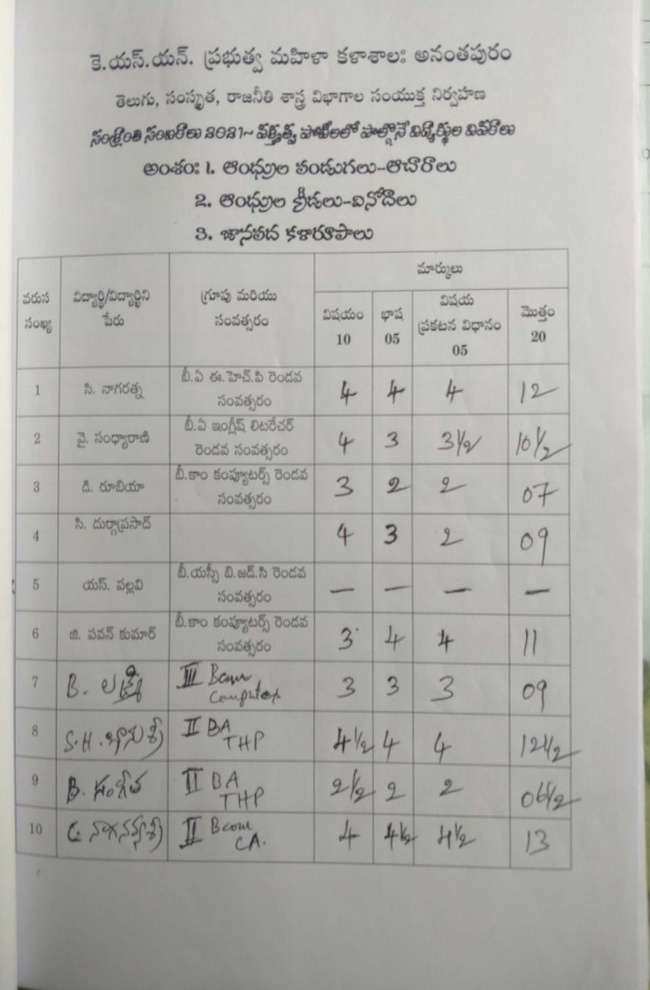 కె.యస్.యన్. ప్రభుత్వ మహిళా కళాశాల: అనంతపురం
తెలుగు, సంస్కృత, రాజనీతి శాస్త్ర విభాగాల సంయుక్త నిర్వహణ
సంక్రాంతి సంబరాలు 2021~ వక్తృత్వ పోటీలలో పాల్గొనే విద్యార్థుల వివరాలు
అంశం: 1. ఆంధ్రుల పండుగలు-ఆచారాలు
2. ఆంధ్రుల క్రీడలు-వినోదాలు
3. జానపద కళారూపాలు
వరుస సంఖ్య విద్యార్థి/విద్యార్థిని పేరు గ్రూపు మరియు సంవత్సరం మార్కులు
విషయం 10 భాష 05 విషయ ప్రకటన విధానం 05 మొత్తం 20
1 సి. నాగరత్న బీ.ఏ ఈ.హెచ్.పి రెండవ సంవత్సరం 4 4 4 12
2 వై. సంధ్యారాణి బీ.ఏ ఇంగ్లీష్ లిటరేచర్ రెండవ సంవత్సరం 4 3 3 1/2 10 1/2
3 డి. రూచియా బీ.కాం కంప్యూటర్స్ రెండవ సంవత్సరం 3 2 2 07
4 సి. దుర్గాప్రసాద్ 4 3 2 09
5 యస్. పల్లవి బీ.యస్సీ బి.జడ్.సి రెండవ సంవత్సరం — — — —
6 జి. పవన్ కుమార్ బీ.కాం కంప్యూటర్స్ రెండవ సంవత్సరం 3 4 4 11
7 B. లక్ష్మి III Bcom Computer 3 3 3 09
8 S.H. భానుశ్రీ II BA THP 4 1/2 4 4 12 1/2
9 B. సంగీత II BA THP 2 1/2 2 2 06 1/2
10 C. నాగనవ్యశ్రీ II Bcom CA. 4 4 1/2 4 1/2 13